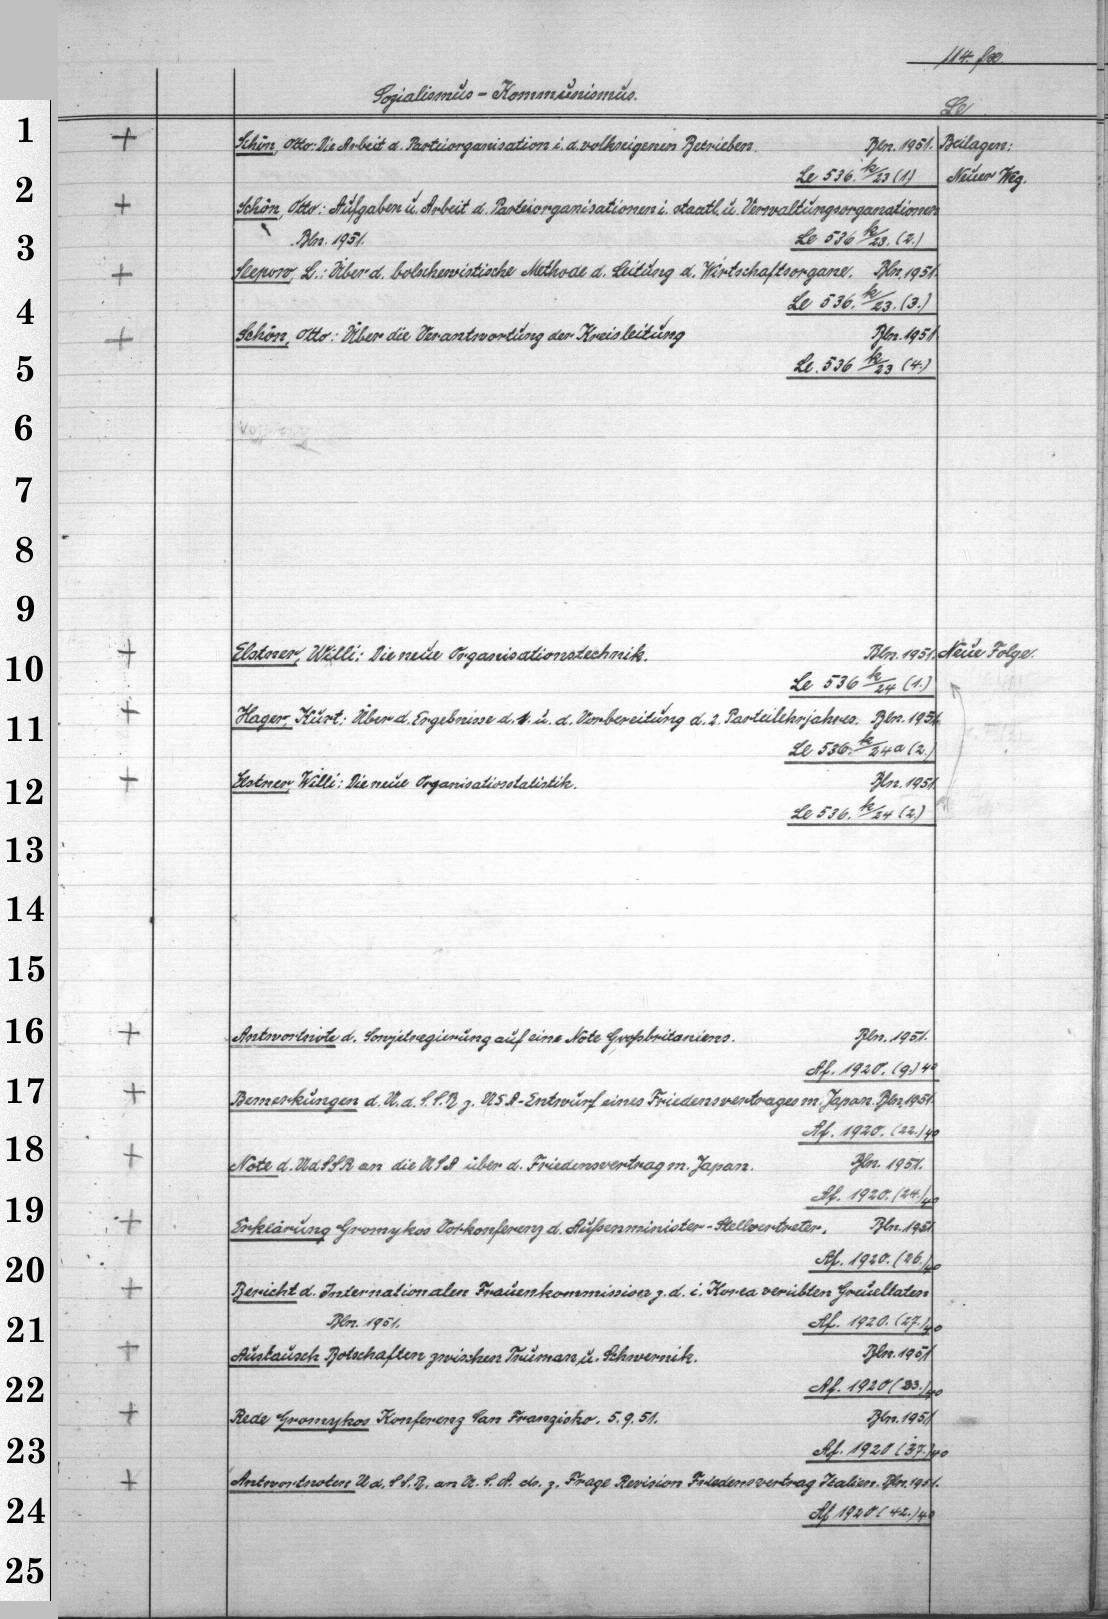 114.
Sozialismus - Kommunismus.
Le
1
+ Schön, Otto: Die Arbeit d. Parteiorganisation i. d. volkseigenen Betrieben. Bln. 1951. Beilagen:
Le 536. k/23 (1) Neuer Weg.
2
+ Schön, Otto: Aufgaben u. Arbeit d. Parteiorganisationen i. staatl. u. Verwaltungsorganationen
Bln. 1951. Le 536 k/23. (2.)
3
+ Slepow, L.: Über d. bolschewistische Methode d. Leitung d. Wirtschaftsorgane. Bln. 1951.
Le 536. k/23. (3.)
4
+ Schön, Otto: Über die Verantwortung der Kreisleitung Bln. 1951
Le. 536 k/23 (4.)
5
6
7
8
9
+ Elstner, Willi: Die neue Organisationstechnik. Bln. 1951. Neue Folge.
10
Le 536 k/24 (1.)
+ Hager, Kurt: Über d. Ergebnisse d. 1. u. d. Vorbereitung d. 2. Parteilehrjahres. Bln. 1951.
11
Le 536. k/24a (2.)
+ Elstner, Willi: Die neue Organisationsstatistik. Bln. 1951.
12
Le 536. k/24 (2.)
13
14
15
16
+ Antwortnote d. Sowjetregierung auf eine Note Großbritaniens. Bln. 1951.
Af. 1920. (9.) 40
17
+ Bemerkungen d. U. d. S.S.R. z. USA-Entwurf eines Friedensvertrages m. Japan. Bln 1951.
Af. 1920. (22.) 40
18
+ Note d. UdSSR an die USA über d. Friedensvertrag m. Japan. Bln. 1951.
Af. 1920. (24.) 40
19
+ Erklärung Gromykos Vorkonferenz d. Außenminister-Stellvertreter. Bln. 1951
Af. 1920. (26.) 40
20
+ Bericht d. Internationalen Frauenkommission z. d. i. Korea verübten Greueltaten
Bln. 1951. Af. 1920. (27.) 40
21
+ Austausch Botschaften zwischen Truman u. Schwernik. Bln. 1951
22
Af. 1920 (33.) 40
+ Rede Gromykos Konferenz San Franzisko. 5.9.51. Bln. 1951
23
Af. 1920 (37.) 40
+ Antwortnoten U d. S.S.R. an U.S.A. ds. z. Frage Revision Friedensvertrag Italien. Bln. 1951.
24
Af 1920 (42.) 40
25